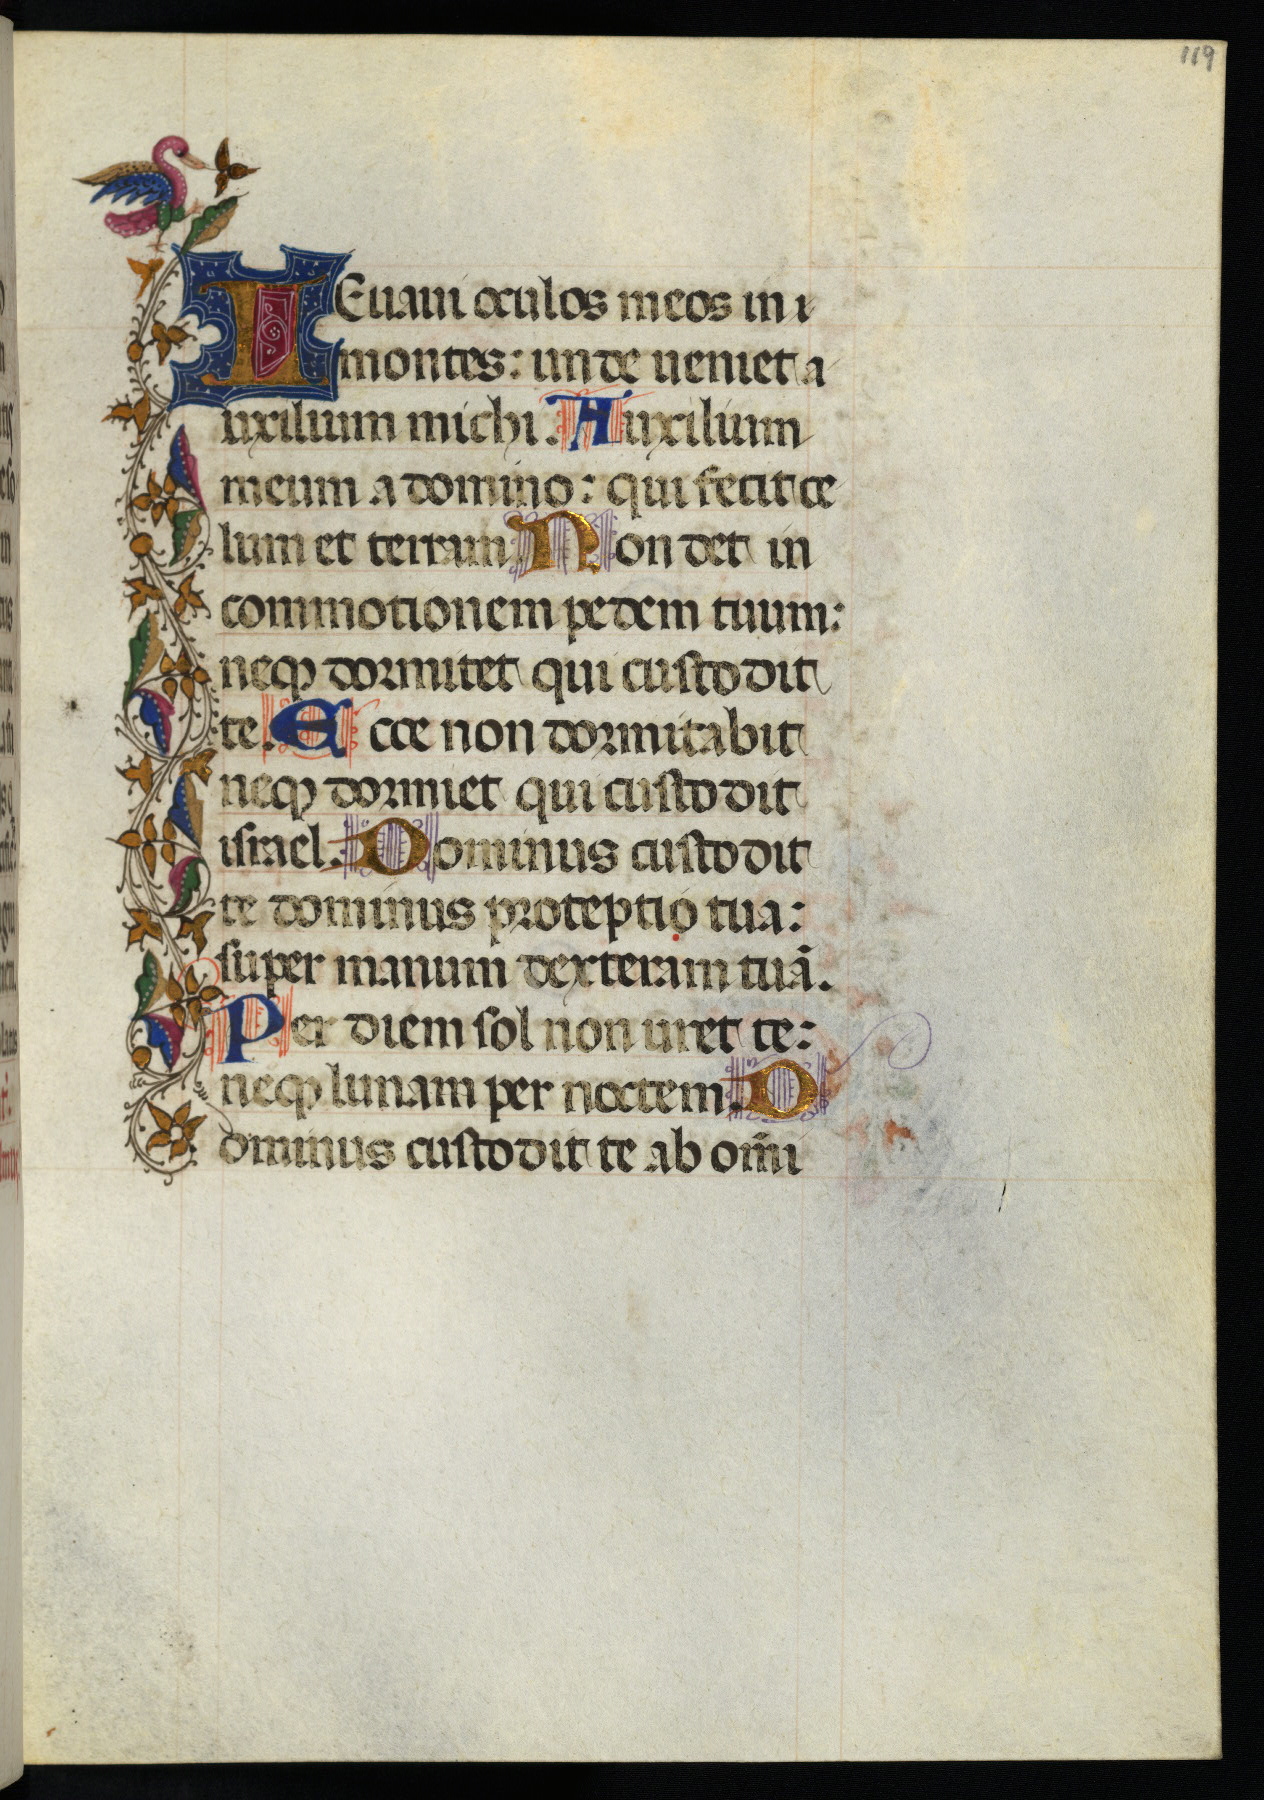 119
LEuaui oculos meos in i
montes: unde ueniet a
uxilium michi. Auxilium
meum a domino: qui fecit ce
lum et terram. Non det in
commotionem pedem tuum:
neqꝫ dormitet qui custodit
te. Ecce non dormitabit
neqꝫ dormiet qui custodit
israel. Dominus custodit
te dominus proteptio tua:
super manum dexteram tuā.
Per diem sol non uret te:
neqꝫ lunam per noctem. D
ominus custodit te ab om̄i